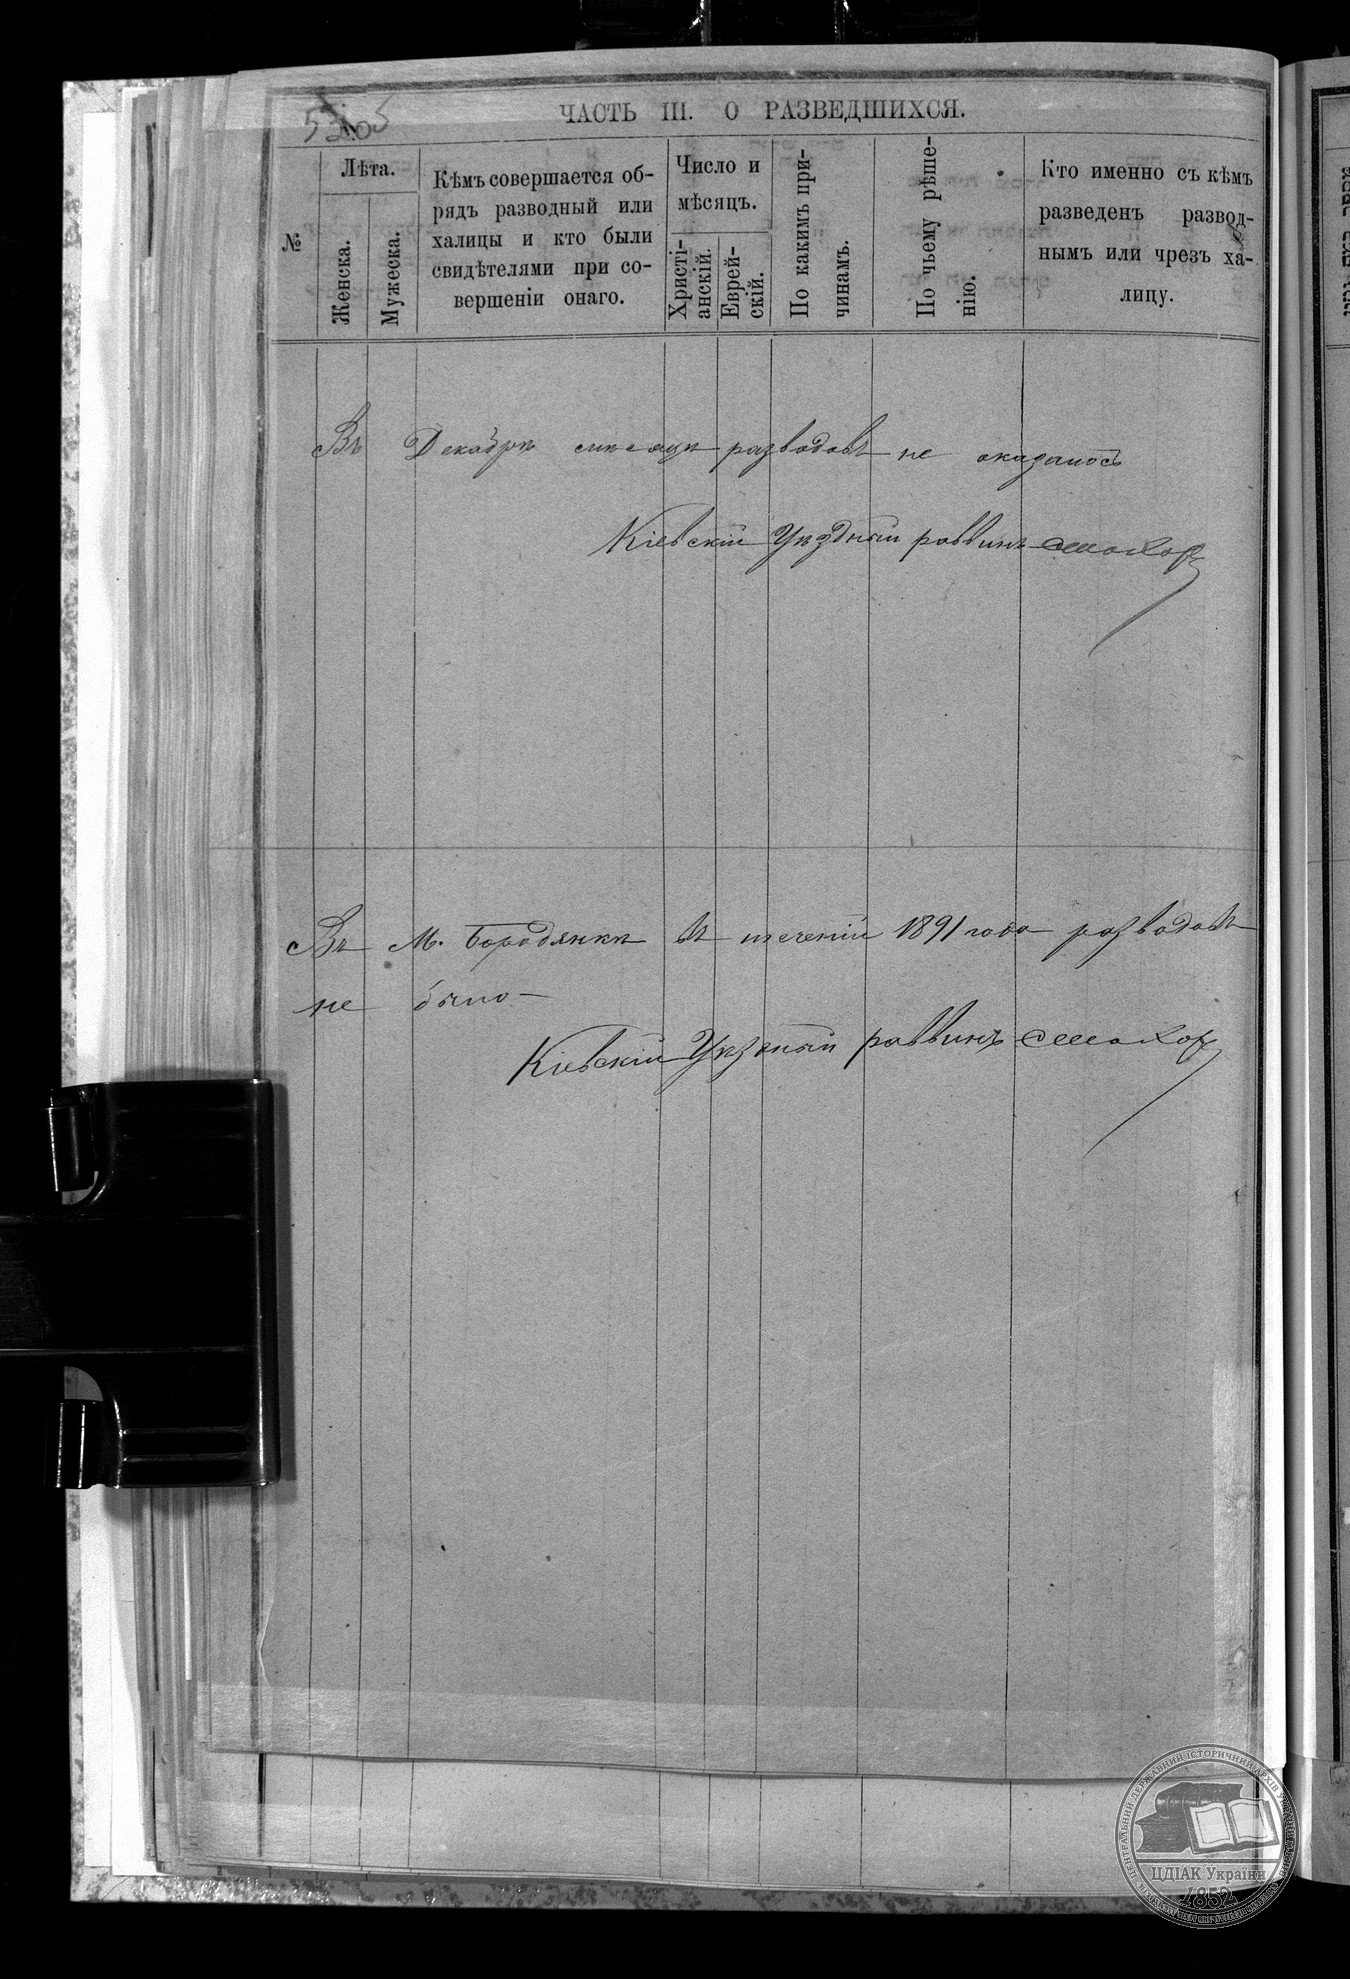 ЧАСТЬ III. О РАЗВЕДШИХСЯ.
№
Лѣта.
Женска.
Мужеска.
Кѣмъ совершается об-
рядъ разводный или
халицы и кто были
свидѣтелями при со-
вершеніи онаго.
Число и
мѣсяцъ.
Христі-
анскій.
Еврей-
скій.
По какимъ при-
чинамъ.
По чьему рѣше-
нію.
Кто именно съ кѣмъ
разведенъ развод-
нымъ или чрезъ ха-
лицу.
Въ Декабрѣ мѣсяцѣ разводовъ не оказалось
Кіевскій Уѣздный раввинъ
Въ М. Бородянкѣ въ теченіи 1891 года разводовъ
не было
Кіевскій Уѣздный раввинъ
ЦЕНТРАЛЬНИЙ ДЕРЖАВНИЙ ІСТОРИЧНИЙ АРХІВ УКРАЇНИ
ЦДІАК України
1852